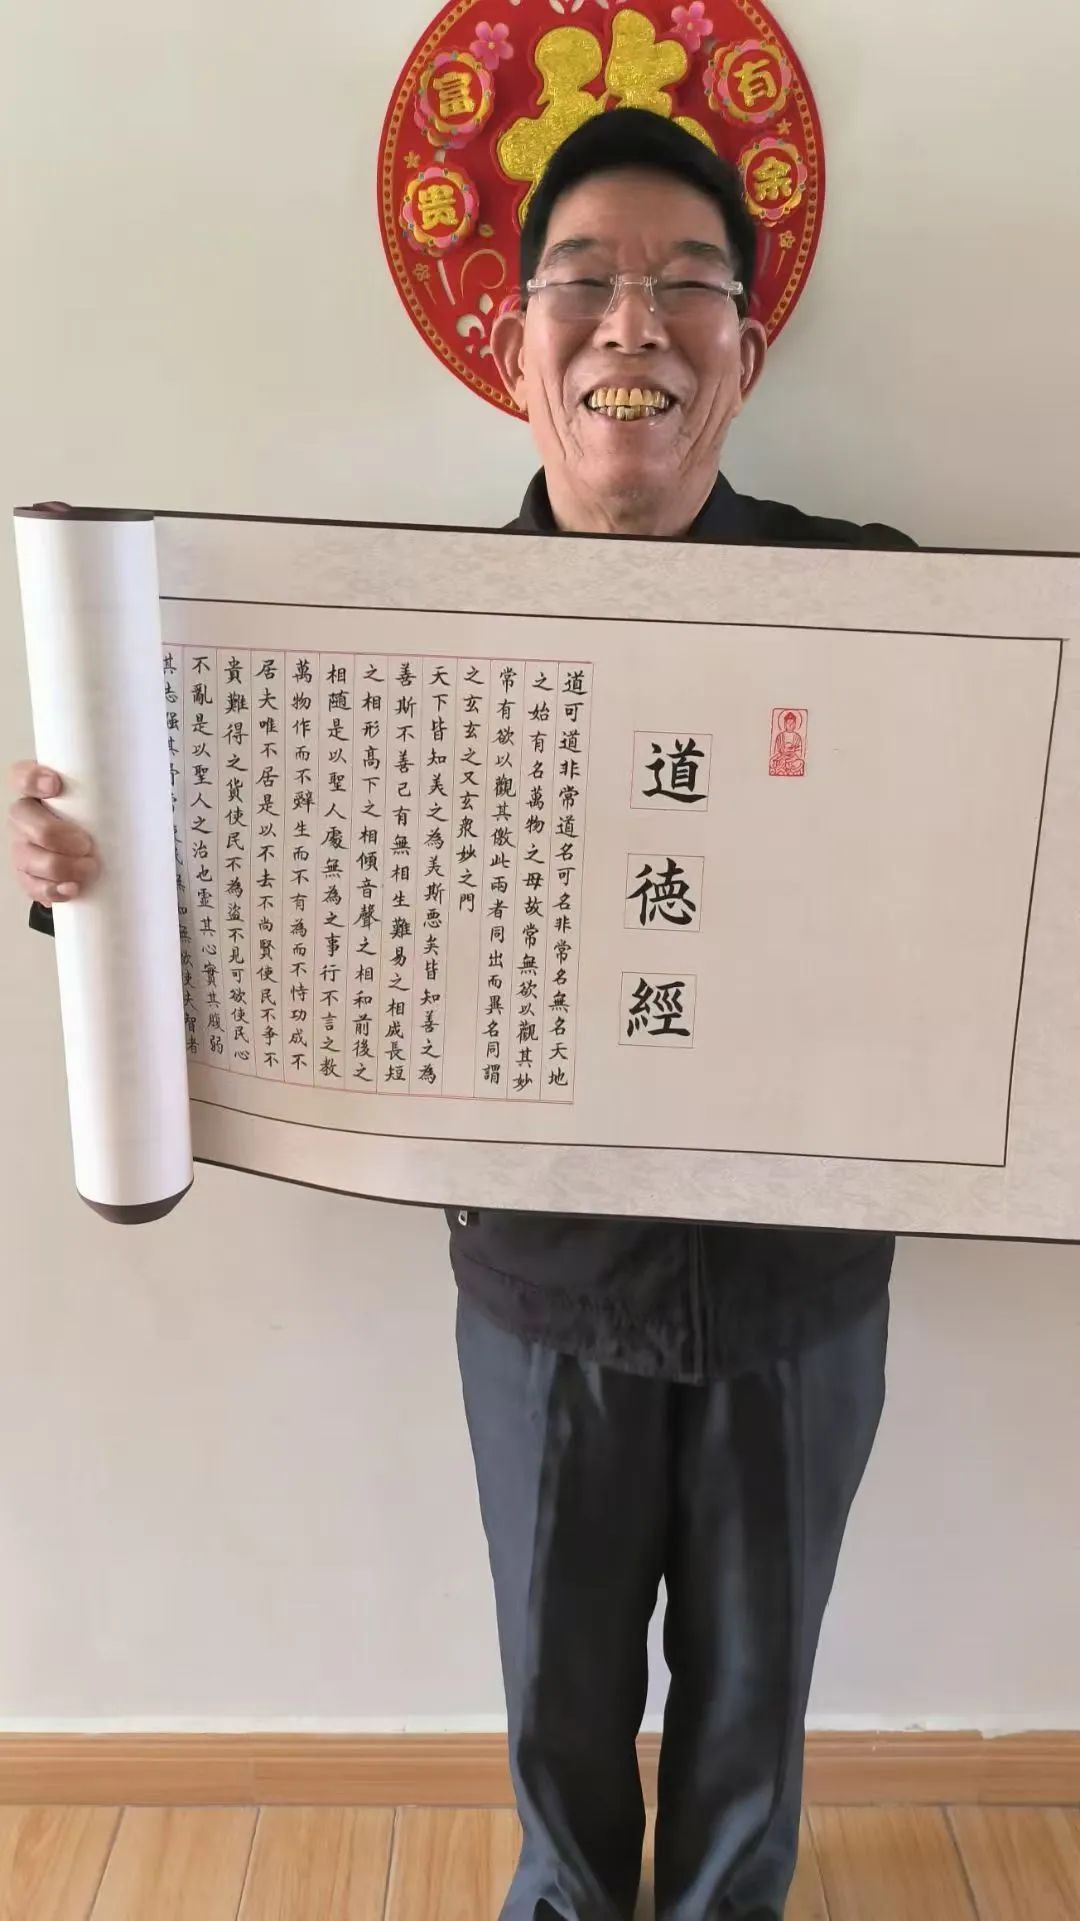 富贵
有余
道德經
道可道非常道名可名非常名無名天地
之始有名萬物之母故常無欲以觀其妙
常有欲以觀其儌此兩者同出而異名同謂
之玄玄之又玄衆妙之門
天下皆知美之為美斯惡矣皆知善之為
善斯不善已有無相生難易之相成長短
之相形高下之相傾音聲之相和前後之
相隨是以聖人處無為之事行不言之教
萬物作而不辭生而不有為而不恃功成不
居夫唯不居是以不去不尚賢使民不爭不
貴難得之貨使民不為盜不見可欲使民心
不亂是以聖人之治也其心實其腹弱
其志强其民無知無欲使夫智者